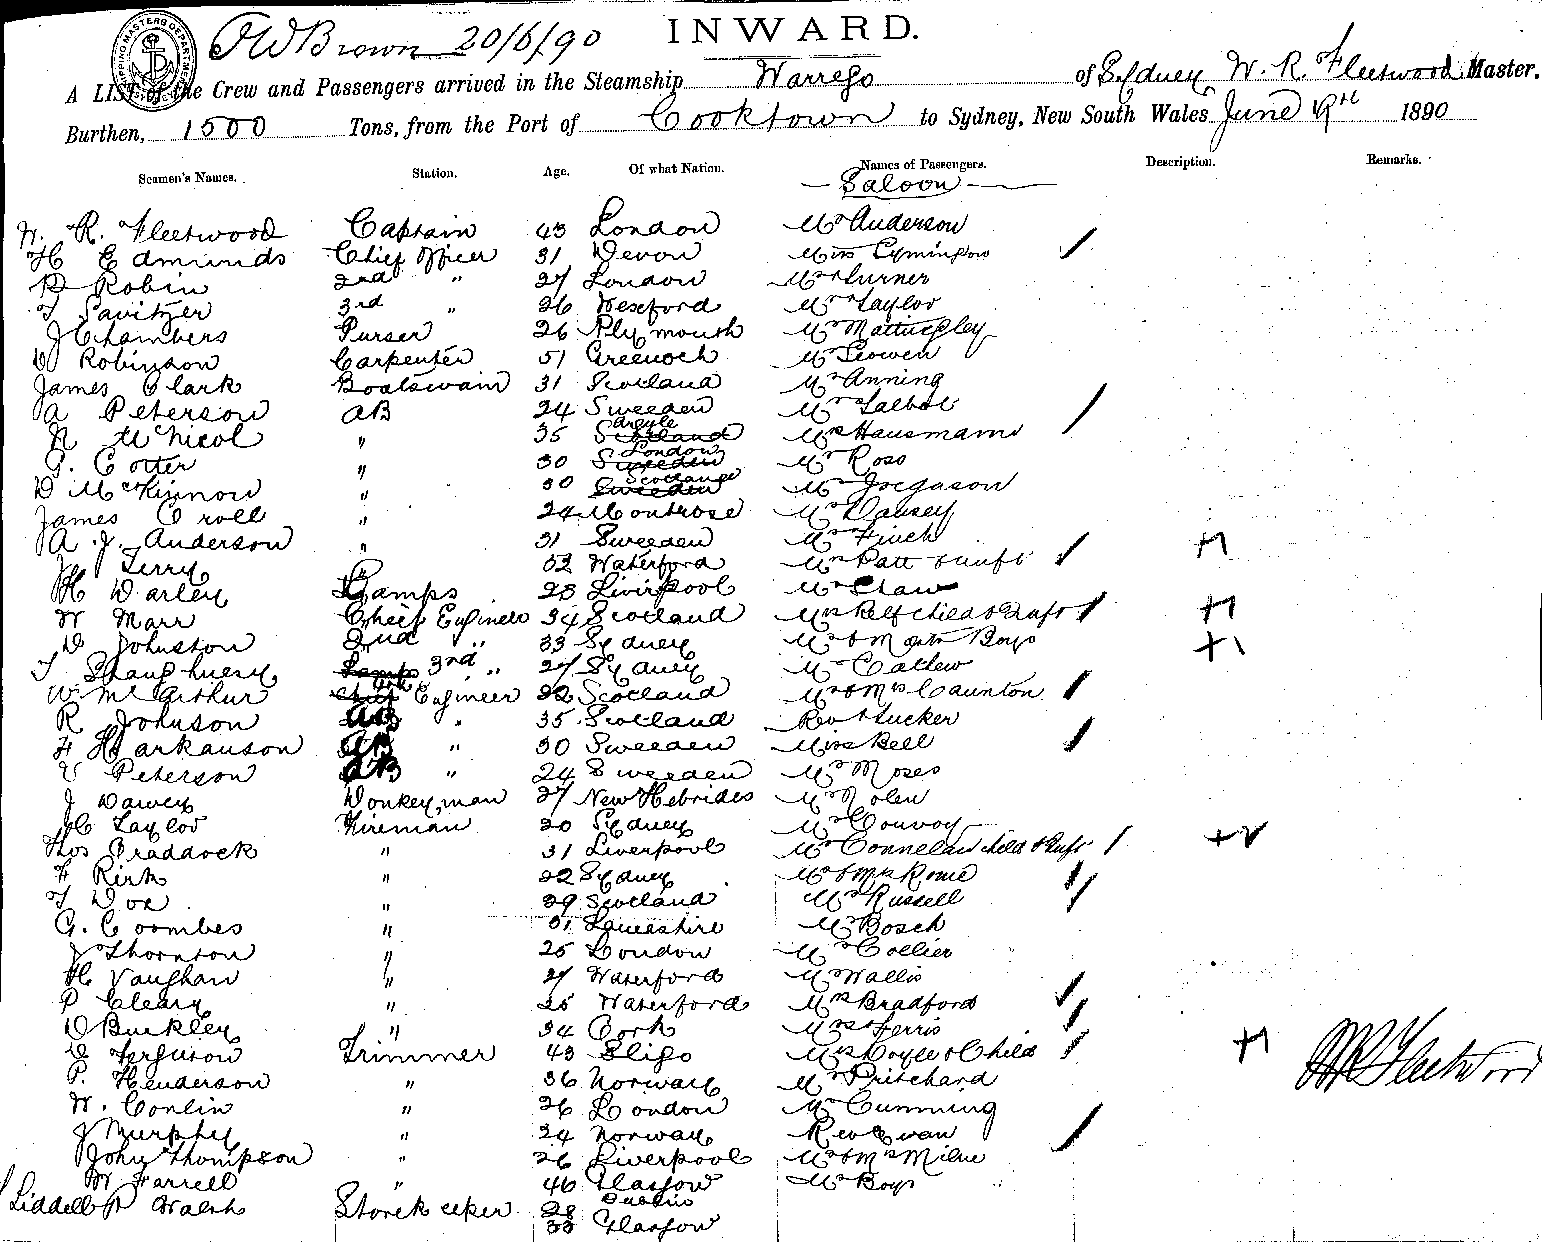 SHIPPING MASTERS DEPARTMENT
JWBrown 20/6/90
INWARD.
A LIST of the Crew and Passengers arrived in the Steamship Warrego of Sydney W. R. Fleetwood Master,
Burthen, 1500 Tons, from the Port of Cooktown to Sydney, New South Wales June 19th 1890
Seamen's Names. Station. Age. Of what Nation. Names of Passengers. Description. Remarks.
Saloon
W. R. Fleetwood Captain 43 London Mr Anderson
H Edmunds Chief Officer 31 Devon Miss Lymington
Robin 2nd " 27 London Mr Turner
T Savitzer 3rd " 26 Wexford Mr Taylor
J Chambers Purser 26 Plymouth Mr Mattingley
D Robinson Carpenter 51 Greenock Mr Lowen
James Clark Boatswain 31 Scotland Mr Anning
A Peterson AB 24 Sweeden Mr Talbot
N McNicol " 35 Scotland Argyle Mrs Hausmann
G. Cotter " 30 Sweeden London Mr Ross
D McKinnon " 30 Sweeden Scotland Mr Joegason
James Croll " 24 Montrose Mr Dausey
A. J. Anderson " 31 Sweeden Mr Finch
J Terry 52 Waterford Mrs Patt & Inft
H Darley Lamps 23 Liverpool Mr Shaw
W Marr Chief Engineer 34 Scotland Mrs Relf child & Infts
D Johnston 2nd " 33 Sydney Mr & Mrs Boys
T Shaughnesy Lamps 3rd " 27 Sydney Mr Cathew
W McArthur Chief 4th Engineer 22 Scotland Mr & Mrs Caunton
R Johnson AB " 35 Scotland Rev Tucker
F Harkanson AB " 30 Sweeden Miss Bell
V Peterson AB " 24 Sweeden Mr Moses
J Dawey Donkeyman 27 New Hebrides Mr Nolen
H Taylor Fireman 20 Sydney Mr Convoy
Thos Craddock " 31 Liverpool Mrs Connelan child & Inft
F Kirk " 22 Sydney Mr & Mrs Rome
T Doe " 29 Scotland Mrs Russell
G. Coombes " 31 Lancashire Mr Bosch
J Thornton " 25 London Mr Collier
H Vaughan " 27 Waterford Mr Wallis
P Cleary " 25 Waterford Mrs Bradford
D Buckley " 34 Cork Mrs Ferris
D Ferguson Trimmer 43 Sligo Mrs Doyle & Child
WRFleetwood
P. Henderson " 36 Norway Mr Pritchard
W. Conlin " 26 London Mr Cumming
J Murphy " 24 Norway Rev Ewan
John Thompson " 26 Liverpool Mr & Mrs Milne
W Farrell " 46 Glasgow Mr Boys
P Walsh Storekeeper 28 Dublin
Liddell 33 Glasgow